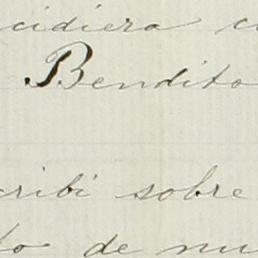 cidiera c
Bendito
cribi sobre
to de nu